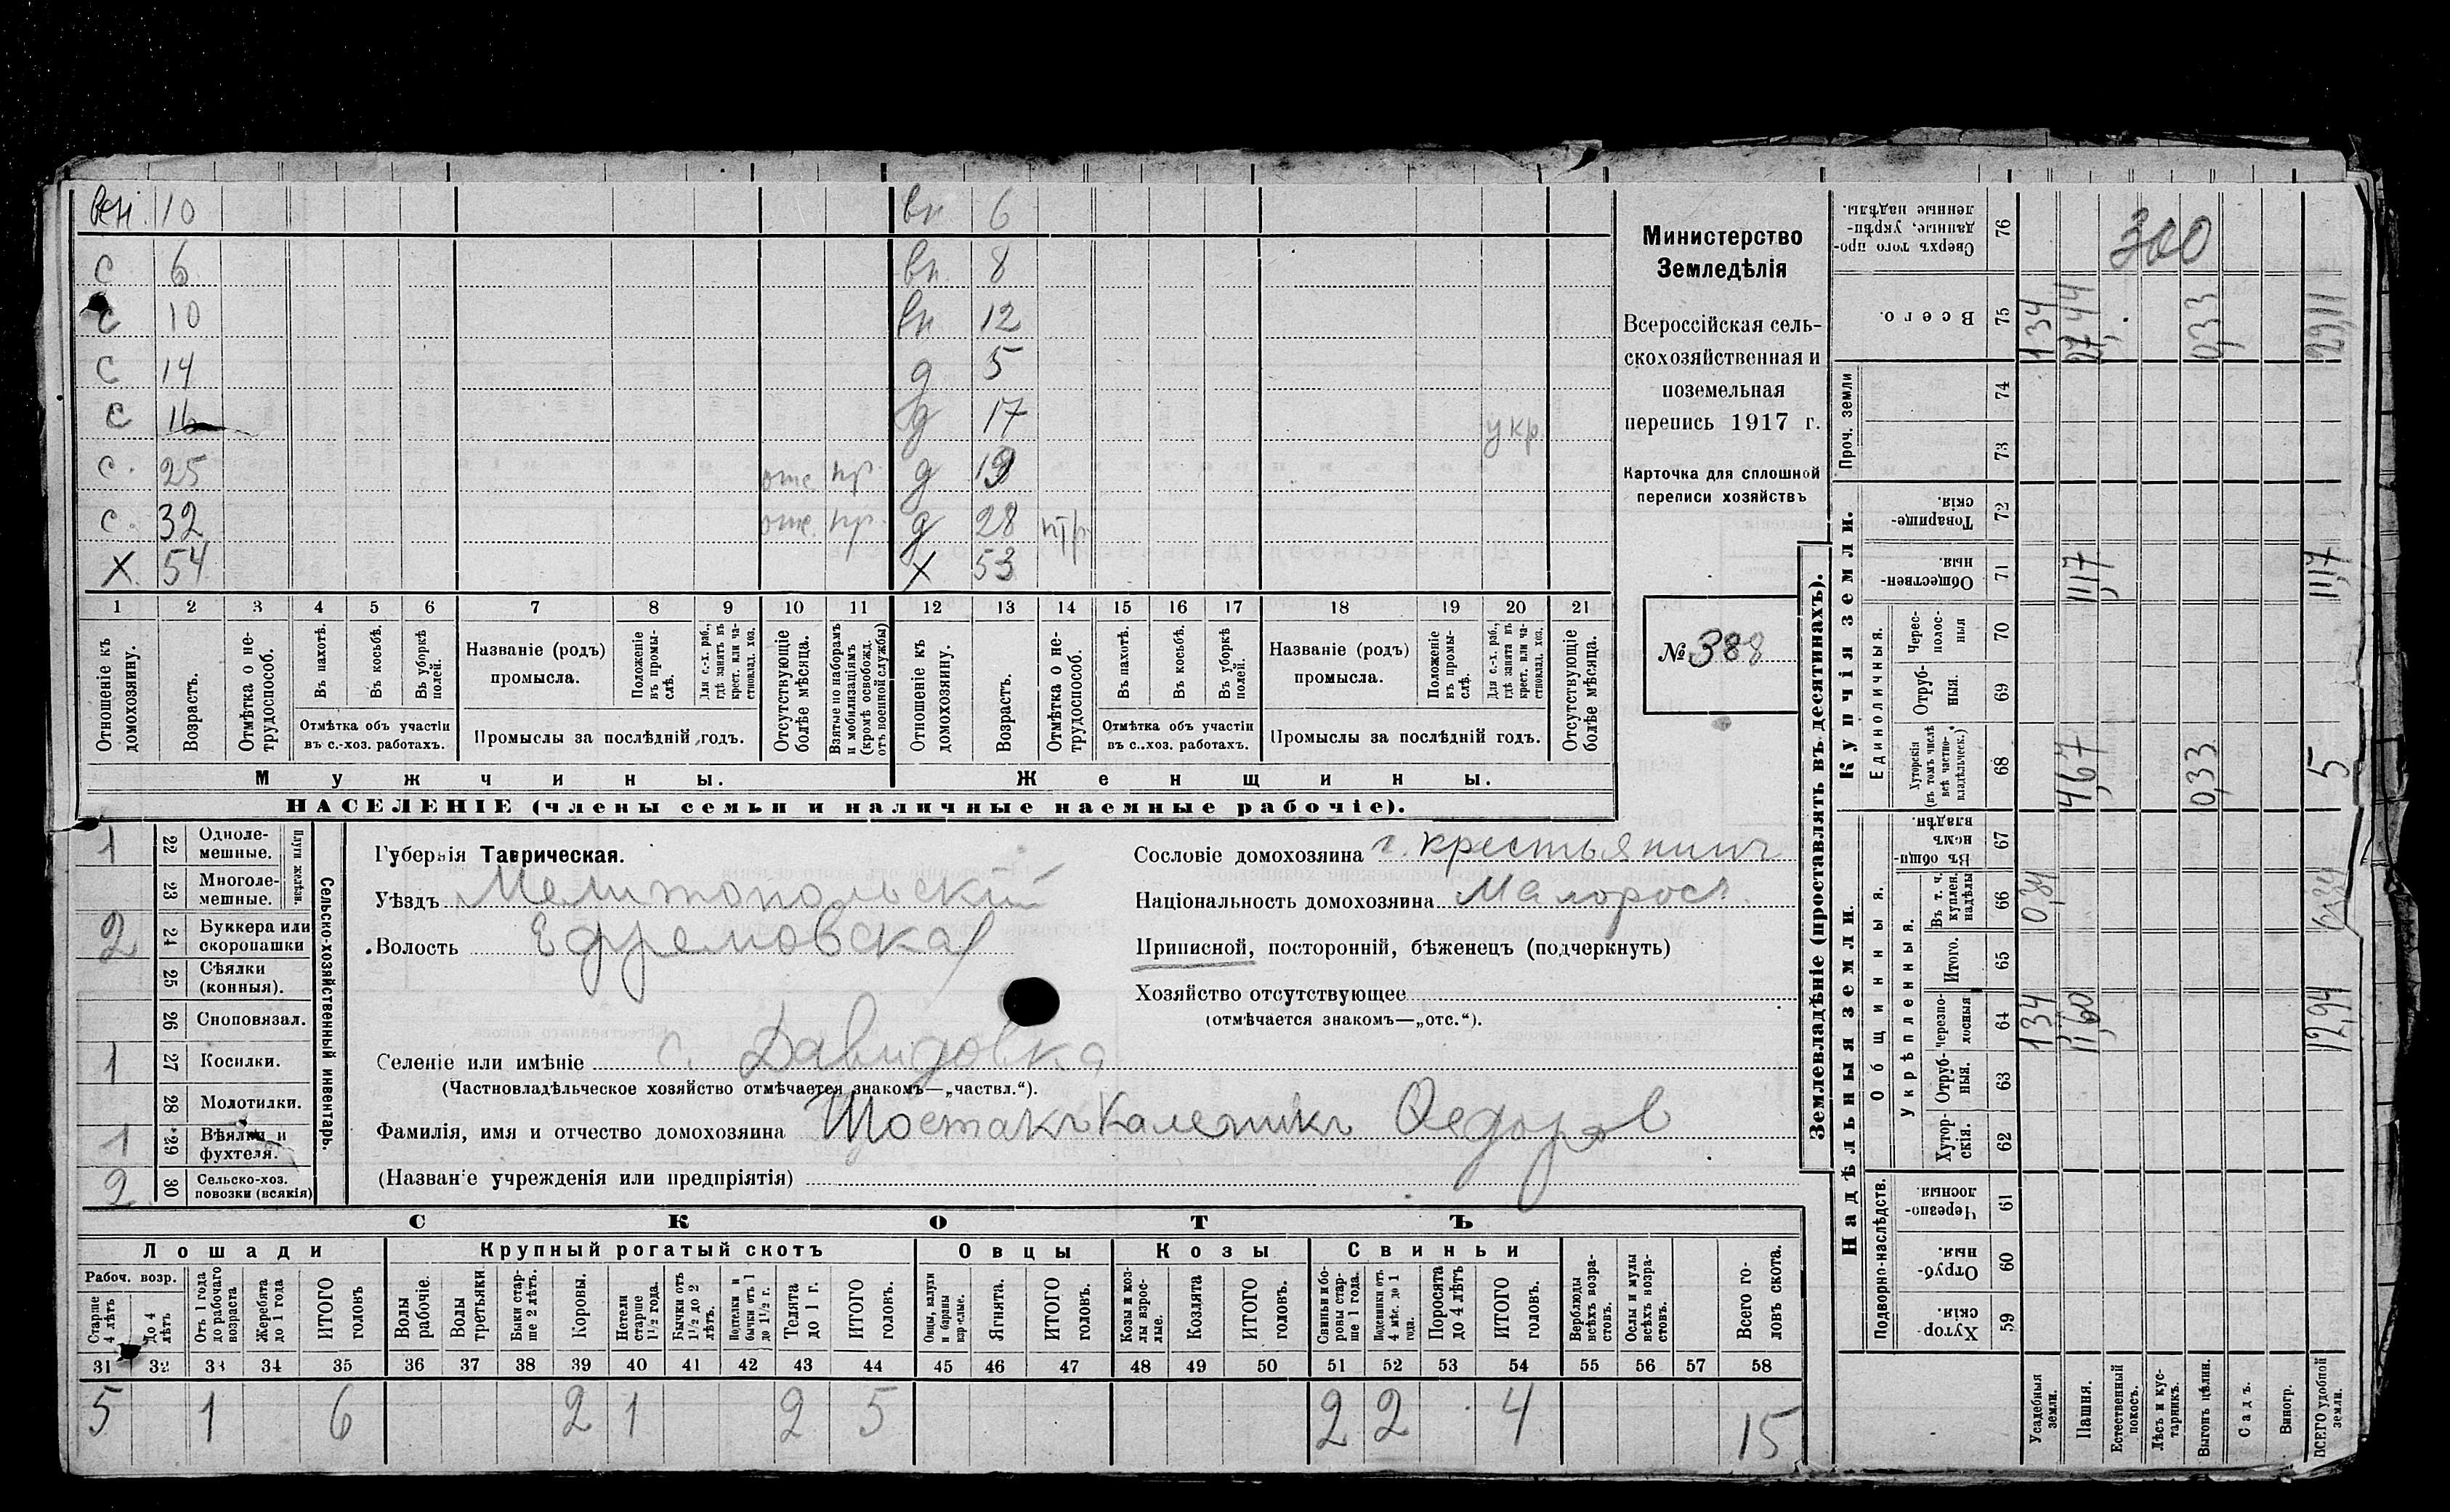 веи. 10 вн 6
с 6 вн. 8
с 10 вн 12
с 14 д 5
с 16 д 17 укр
с. 25 отс. пр. д 19
с. 32 отс. пр. д 28 н/тр
Х 54 Х 53
1 2 3 4 5 6 7 8 9 10 11 12 13 14 15 16 17 18 19 20 21
Отношеніе къ домохозяину.
Возрастъ.
Отмѣтка о не-
трудоспособ.
Въ пахотѣ.
Въ косьбѣ.
Въ уборкѣ
полей.
Отмѣтка объ участіи
въ с.-хоз. работахъ.
Названіе (родъ)
промысла.
Положеніе
въ промы-
слѣ.
Для с.-х. раб.,
гдѣ занятъ въ
крест. или ча-
стновлад. хоз.
Промыслы за послѣдній годъ.
Отсутствующіе
болѣе мѣсяца.
Взятые по наборамъ
и мобилизаціямъ
(кромѣ освобожд.
отъ военной службы)
Отношеніе къ
домохозяину.
Возрастъ.
Отмѣтка о не-
трудоспособ.
Въ пахотѣ.
Въ косьбѣ.
Въ уборкѣ
полей.
Отмѣтка объ участіи
въ с..хоз. работахъ.
Названіе (родъ)
промысла.
Положеніе
въ промы-
слѣ.
Для с.-х. раб.,
гдѣ занята въ
крест. или ча-
стновлад. хоз.
Промыслы за послѣдній годъ.
Отсутствующіе
болѣе мѣсяца.
Мужчины. Женщины.
НАСЕЛЕНІЕ (члены семьи и наличные наемные рабочіе).
Министерство
Земледѣлія
Всероссійская сель-
скохозяйственная и
поземельная
перепись 1917 г.
Карточка для сплошной
переписи хозяйствъ
№ 388
1 22 Одноле-
мешные.
23 Многоле-
мешные.
Плуги желѣзн.
2 24 Буккера или
скоропашки
25 Сѣялки
(конныя).
26 Сноповязал.
1 27 Косилки.
28 Молотилки.
1 29 Вѣялки и
фухтеля.
2 30 Сельско-хоз.
повозки (всякія)
Сельско-хозяйственный инвентарь.
Губернія Таврическая.
Уѣздъ Мелитопольскій
Волость Ефремовская
Селеніе или имѣніе с. Давидовка
(Частновладѣльческое хозяйство отмѣчается знакомъ—„частвл.“).
Фамилія, имя и отчество домохозяина Шостакъ Каленикъ Федоров
(Названіе учрежденія или предпріятія)
Сословіе домохозяина г. крестьянинъ
Національность домохозяина Малоросъ
Приписной, посторонній, бѣженецъ (подчеркнуть)
Хозяйство отсутствующее
(отмѣчается знакомъ—„отс.“).
СКОТЪ
Лошади Крупный рогатый скотъ Овцы Козы Свиньи
Рабоч. возр.
Старше
4 лѣтъ
До 4
лѣтъ
Отъ 1 года
до рабочаго
возраста
Жеребята
до 1 года
ИТОГО
головъ
Волы
рабочіе.
Волы
третьяки.
Быки стар-
ше 2 лѣтъ.
Коровы.
Нетели
старше
1½ года.
Бычки отъ
1½ до 2
лѣтъ.
Подтелки и
бычки отъ 1
до 1½ г.
Телята
до 1 г.
ИТОГО
головъ.
Овцы, валухи
и бараны
взрослые.
Ягнята.
ИТОГО
головъ.
Козы и коз-
лы взрос-
лые.
Козлята
ИТОГО
головъ.
Свиньи и бо-
ровы стар-
ше 1 года.
Подсвинки отъ
4 мѣс. до 1
года.
Поросята
до 4 лѣтъ
ИТОГО
головъ.
Верблюды
всѣхъ возра-
стовъ.
Ослы и мулы
всѣхъ возра-
стовъ.
Всего го-
ловъ скота.
31 32 33 34 35 36 37 38 39 40 41 42 43 44 45 46 47 48 49 50 51 52 53 54 55 56 57 58
5 1 6 2 1 2 5 2 2 4 15
Землевладѣніе (проставлять въ десятинахъ).
Купчія земли.
Надѣльныя земли.
Сверхъ того про-
данные, укрѣп-
ленные надѣлы. 76 300
Всего. 75 1,34 27,44 0,33 29,11
Проч. земли 74
73
Товарище-
скія. 72
Обществен-
ныя. 71 11,17 11,17
Единоличныя.
Черес-
полос-
ныя 70
Отруб-
ныя. 69
Хуторскія
(въ томъ числѣ
всѣ частно-
владѣльческ.) 68 4,67 0,33 5
Общинныя.
Въ общи
номъ
владѣн. 67
Укрѣпленныя.
Въ т. ч.
куплен.
надѣлы 66 0,34 0,34
Итого. 65
Черезпо-
лосныя 64 1,34 11,60 12,94
Отруб-
ныя. 63
Хутор-
скія. 62
Подворно-наслѣдств.
Черезпо-
лосныя. 61
Отруб-
ныя. 60
Хутор-
скія. 59
Усадебныя
земли.
Пашня.
Естественный
покосъ.
Лѣсъ и кус-
тарникъ.
Выгонъ цѣлин.
Садъ.
Виногр.
ВСЕГО удобной
земли.